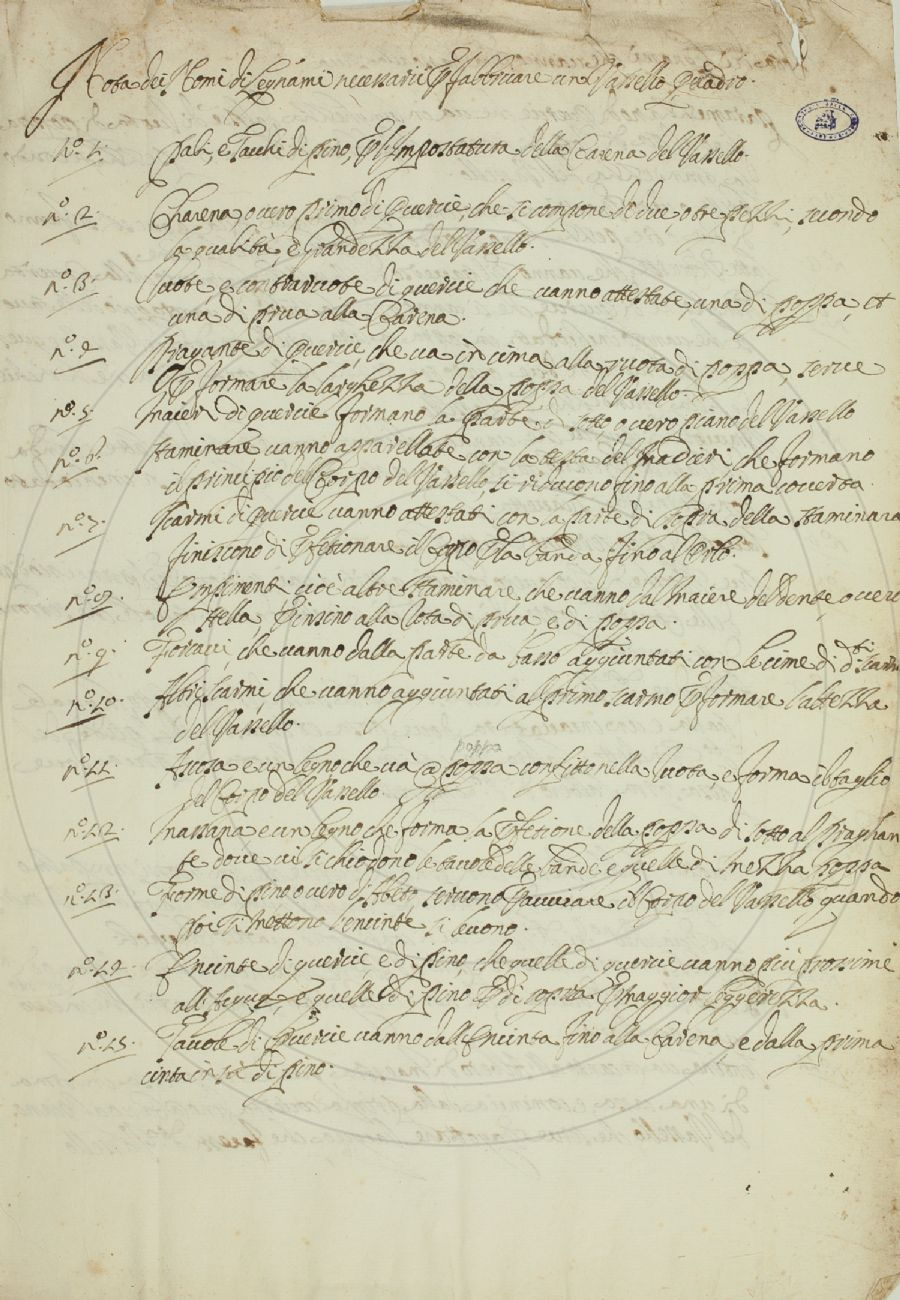 Nota dei Nomi di Legnami necessarii P fabbricare un Vassello Quadro.
N.º 1. Pali, e Tacchi di Pino, P l'Impostatura della Carena del Vassello.
nº. 2. Charena, overo Primo di Quercie che si compone di due, o tre pezzi, secondo
la qualità, e Grandezza del Vassello.
nº. 3. Ruote, e contraruote di quercie che vanno attestate, una di poppa, et
una di prua alla Carena.
nº. 4 Dragante di Quercie, che va in cima alla ruota di poppa, serve
P formare la larghezza della poppa del Vassello.
nº. 5. Maieri di quercie formano la Parte di sotto, overo piano del Vassello
nº. 6. Staminare vanno apparellate con la testa del Madieri che formano
il principio del Corpo del Vassello, si riducono fino alla prima coverta.
nº. 7. Scarmi di quercie vanno attestati con la parte di sopra della staminara
finiscono di Pfetionare il Corpo P la banda fino al Orlo.
nº. 8. Empimenti cioè altre staminare che vanno dal Maiere del dente, overo
stella P insino alla Rota di prua e di poppa.
nº. 9. Forcacci, che vanno dalla parte da basso aggiuntati con le cime di d.ti scarmi
nº. 10. Altri scarmi, che vanno aggiuntati al primo scarmo P formare l'altezza
del Vassello.
poppa
nº. 11. è un legno che và a poppa confitto nella Ruota, e forma il taglio
del Corpo del Vassello.
nº. 12. è un legno che forma la Pfetione della poppa di sotto al Draghan
te dove vi si chiodono le tavole delle bande e quelle di Mezza poppa
nº. 13. Forme di pino overo di Abeto, servono P il Corpo del Vassello quando
poi si mettono l'encinte si levono.
nº. 14. Encinte di quercie, e di Pino, che quelle di quercie vanno più prossime
all'Acqua, e quelle di pino P di sopra P maggior leggerezza.
nº. 15. Tavole di Quercie vanno dall'Encinta fino alla Carena, e dalla prima
cinta in sù di Pino.